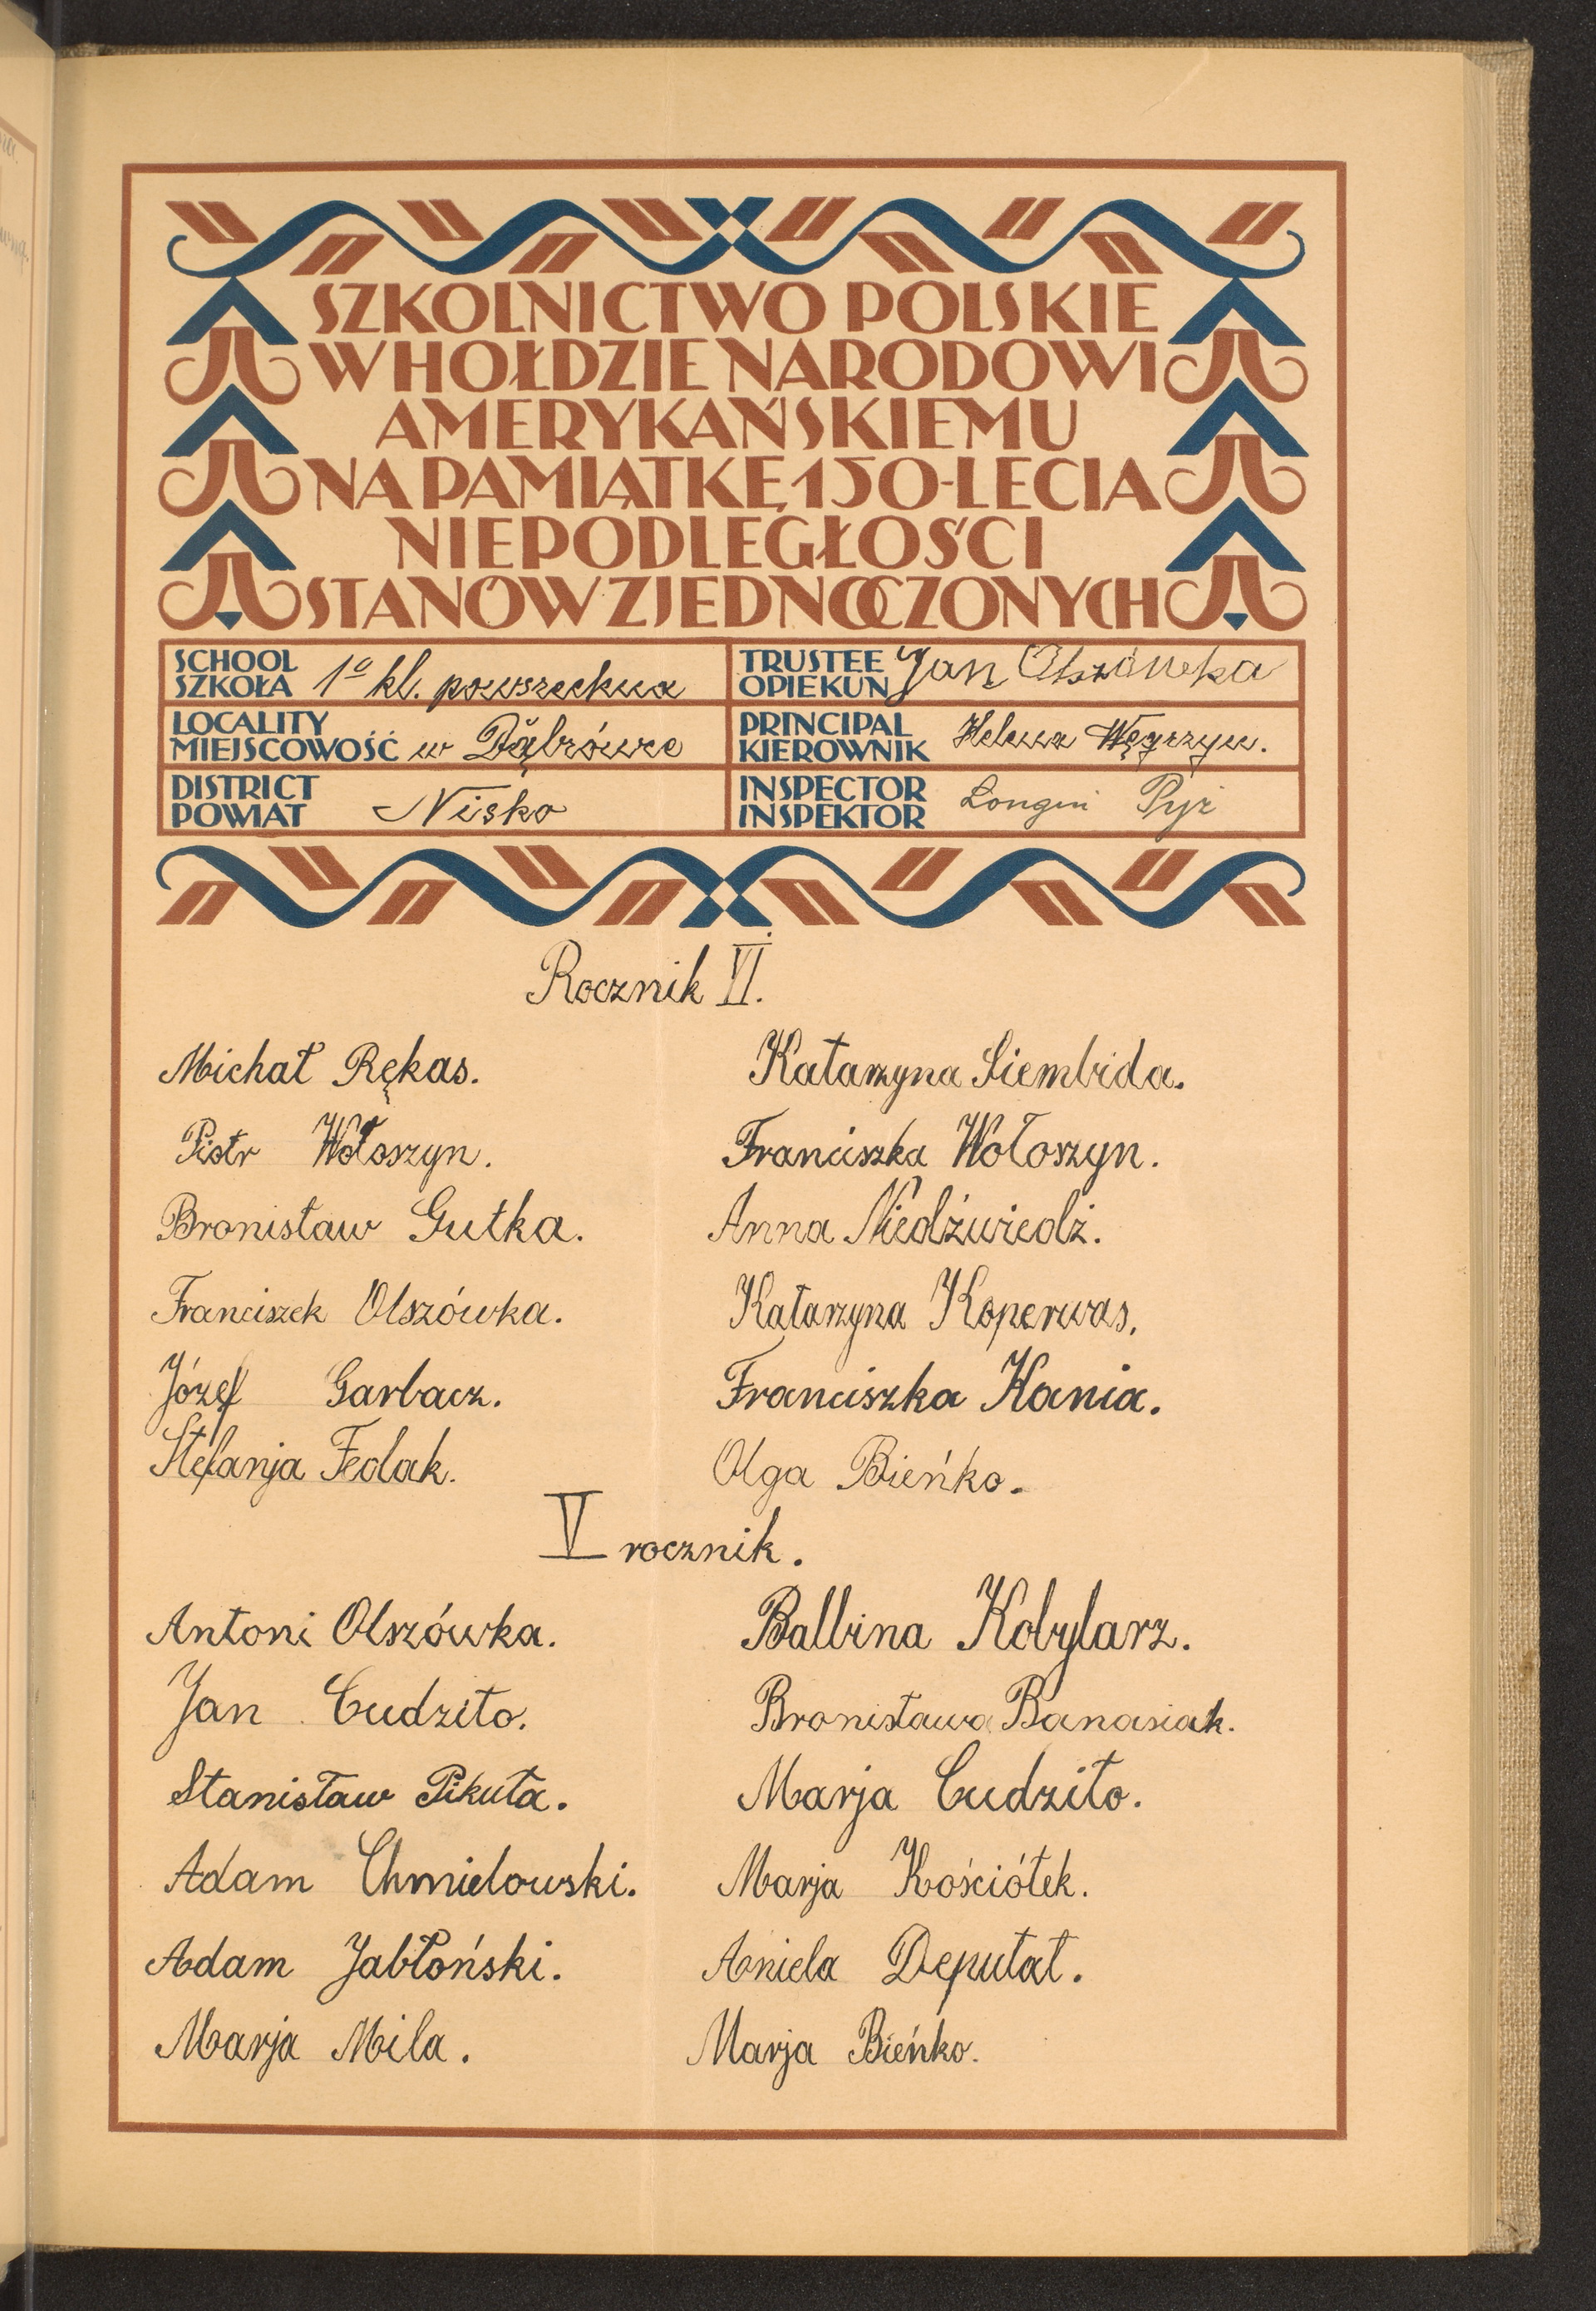 SZKOLNICTWO POLSKIE
W HOŁDZIE NARODOWI
AMERYKAŃSKIEMU
NA PAMIĄTKĘ 150-LECIA
NIEPODLEGŁOŚCI
STANÓW ZJEDNOCZONYCH
SCHOOL
SZKOŁA 1o kl. powszechna
TRUSTEE
OPIEKUN Jan Olszówka
LOCALITY
MIEJSCOWOŚĆ w Dąbrówce
PRINCIPAL
KIEROWNIK Helena Węgrzyn.
DISTRICT
POWIAT Nisko
INSPECTOR
INSPEKTOR Longin Pyż
Rocznik VI.
Michał Rękas.
Piotr Wołoszyn.
Bronisław Gutka.
Franciszek Olszówka.
Józef Garbacz.
Stefanja Fedak.
Katarzyna Siembida.
Franciszka Wołoszyn.
Anna Niedźwiedź.
Katarzyna Koperwas.
Franciszka Kania.
Olga Bieńko.
V rocznik.
Antoni Olszówka.
Jan Cudziło.
Stanisław Pikuła.
Adam Chmielowski.
Adam Jabłoński.
Marja Mila.
Balbina Kobylarz.
Bronisława Banasiak.
Marja Cudziło.
Marja Kościółek.
Aniela Deputat.
Marja Bieńko.